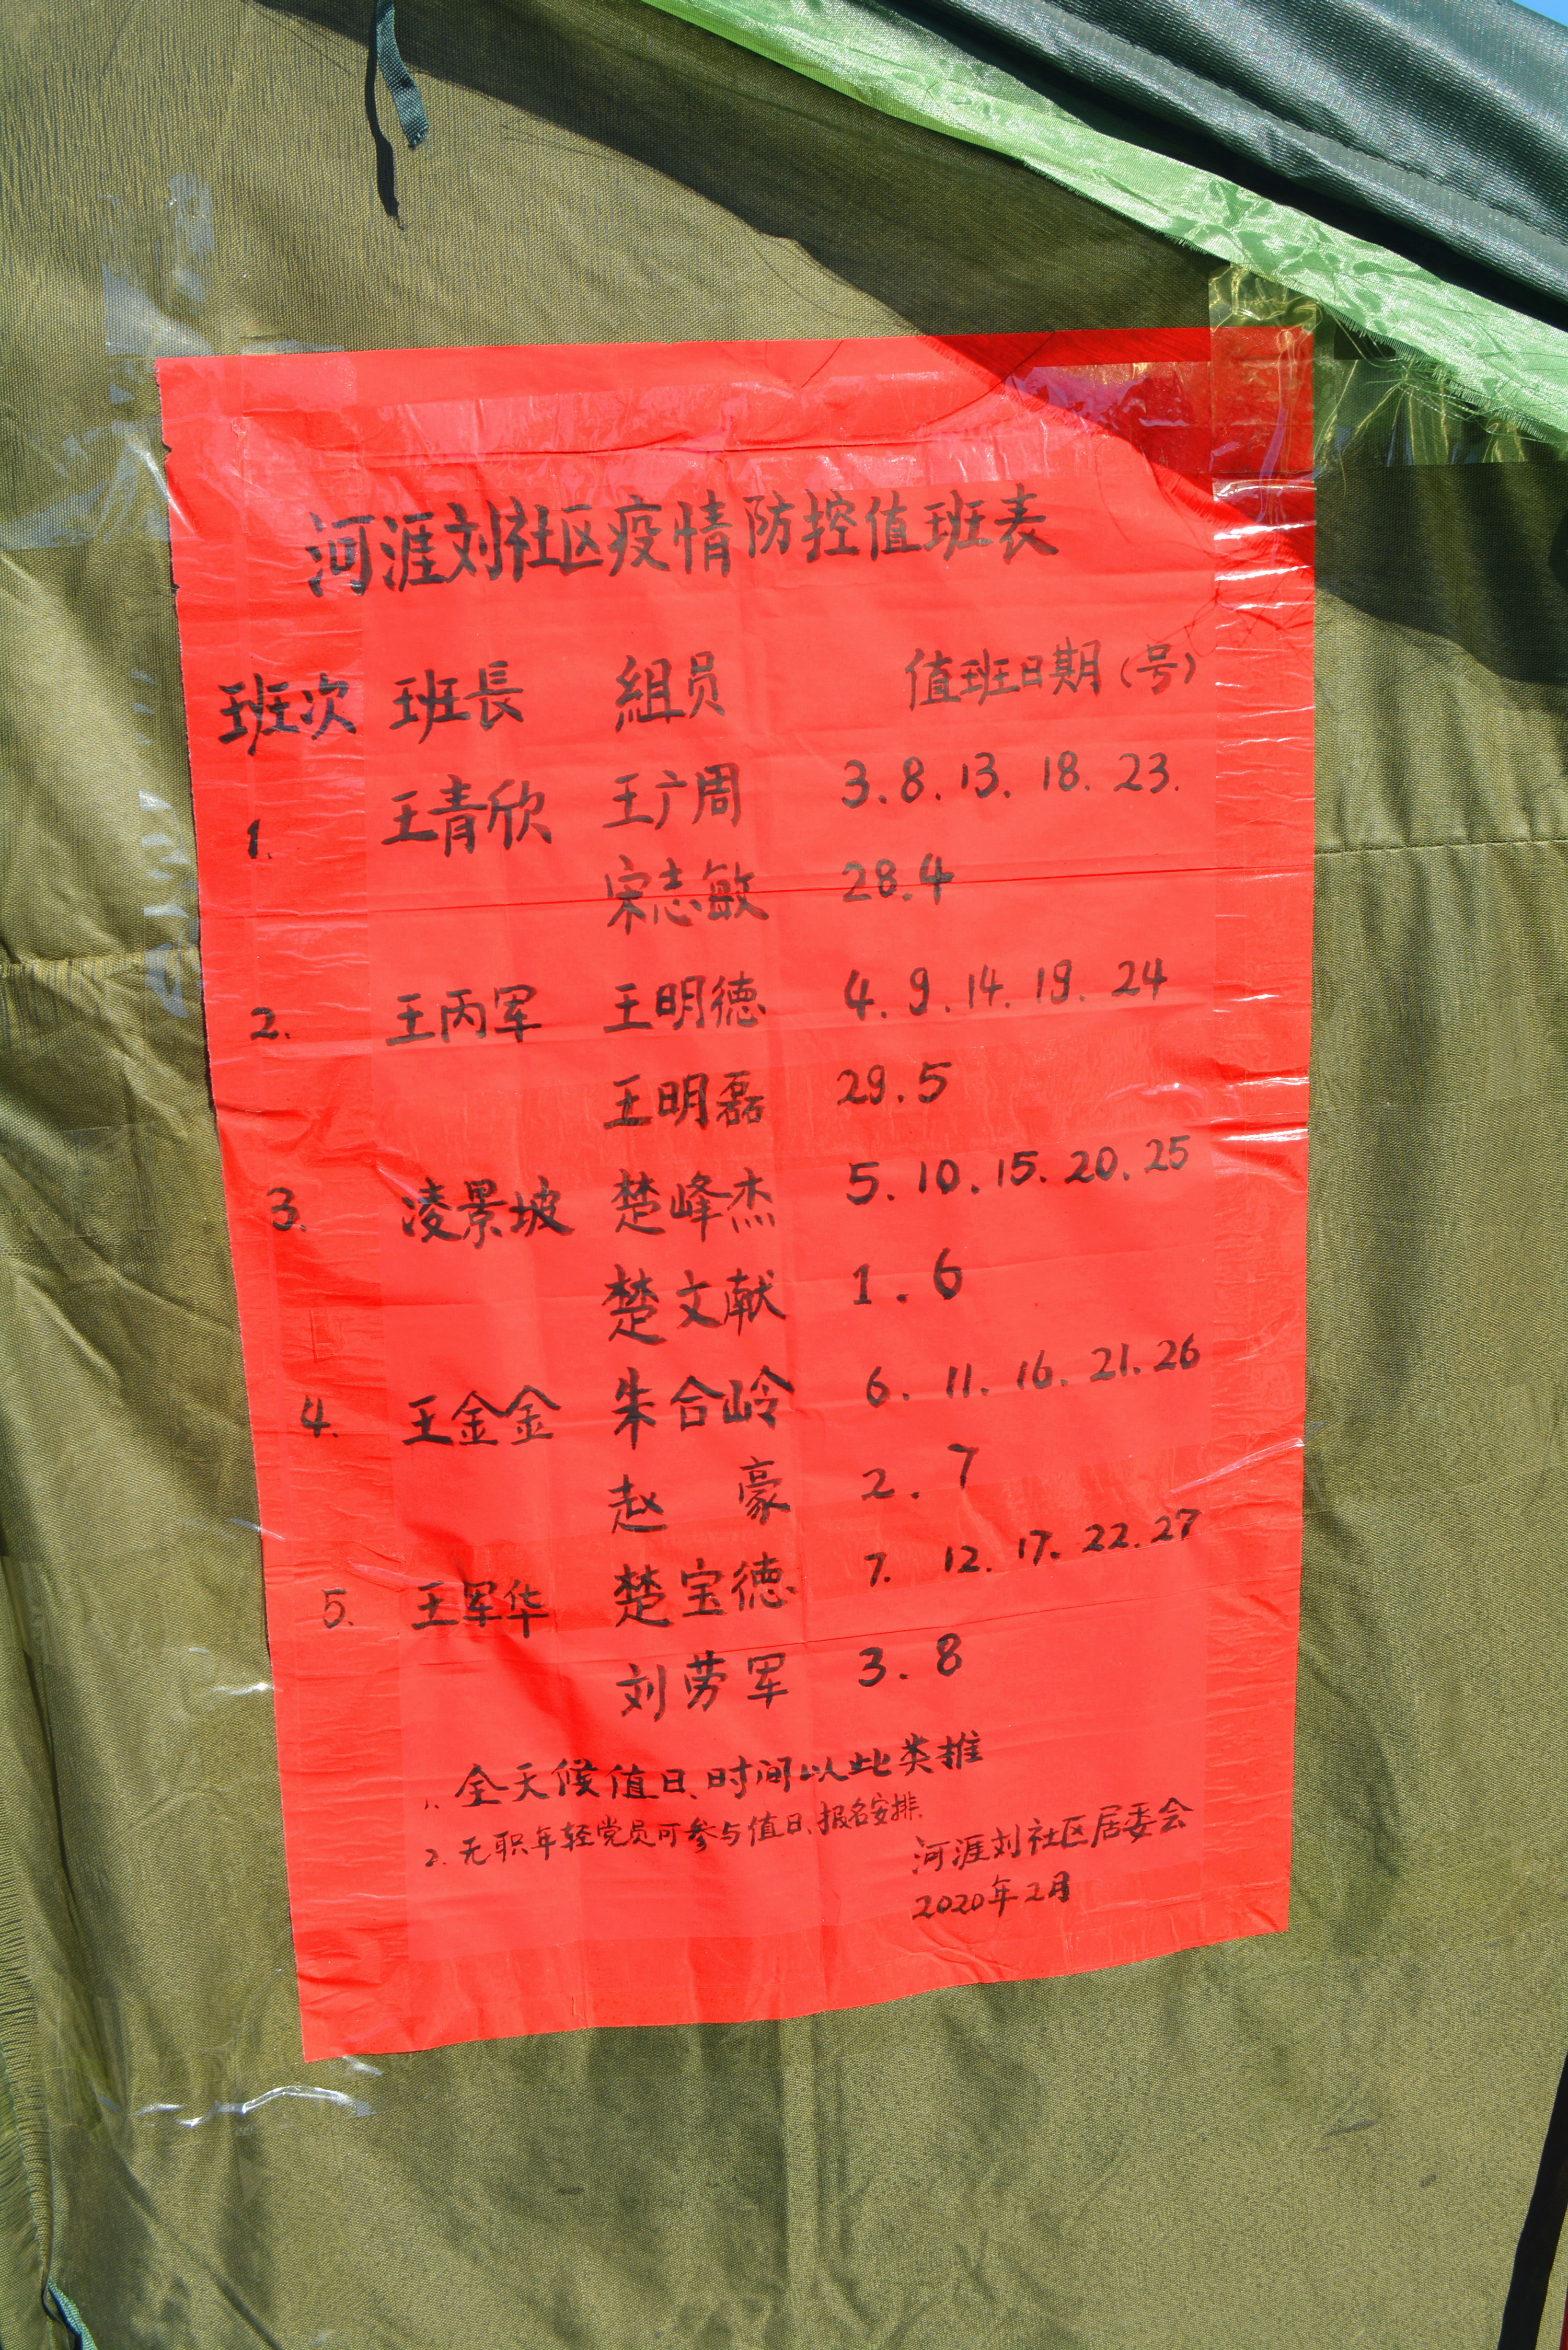 河涯刘社区疫情防控值班表
班次 班長 組员 值班日期(号)
1. 王青欣 王广周 3.8.13.18.23.
宋志敏 28.4
2. 王丙军 王明德 4.9.14.19.24
王明磊 29.5
3. 凌景坡 楚峰杰 5.10.15.20.25
楚文献 1.6
4. 王金金 朱合岭 6.11.16.21.26
赵豪 2.7
5. 王军华 楚宝德 7.12.17.22.27
刘劳军 3.8
1. 全天候值日、时间以此类推
2. 无职年轻党员可参与值日、报名安排.
河涯刘社区居委会
2020年2月